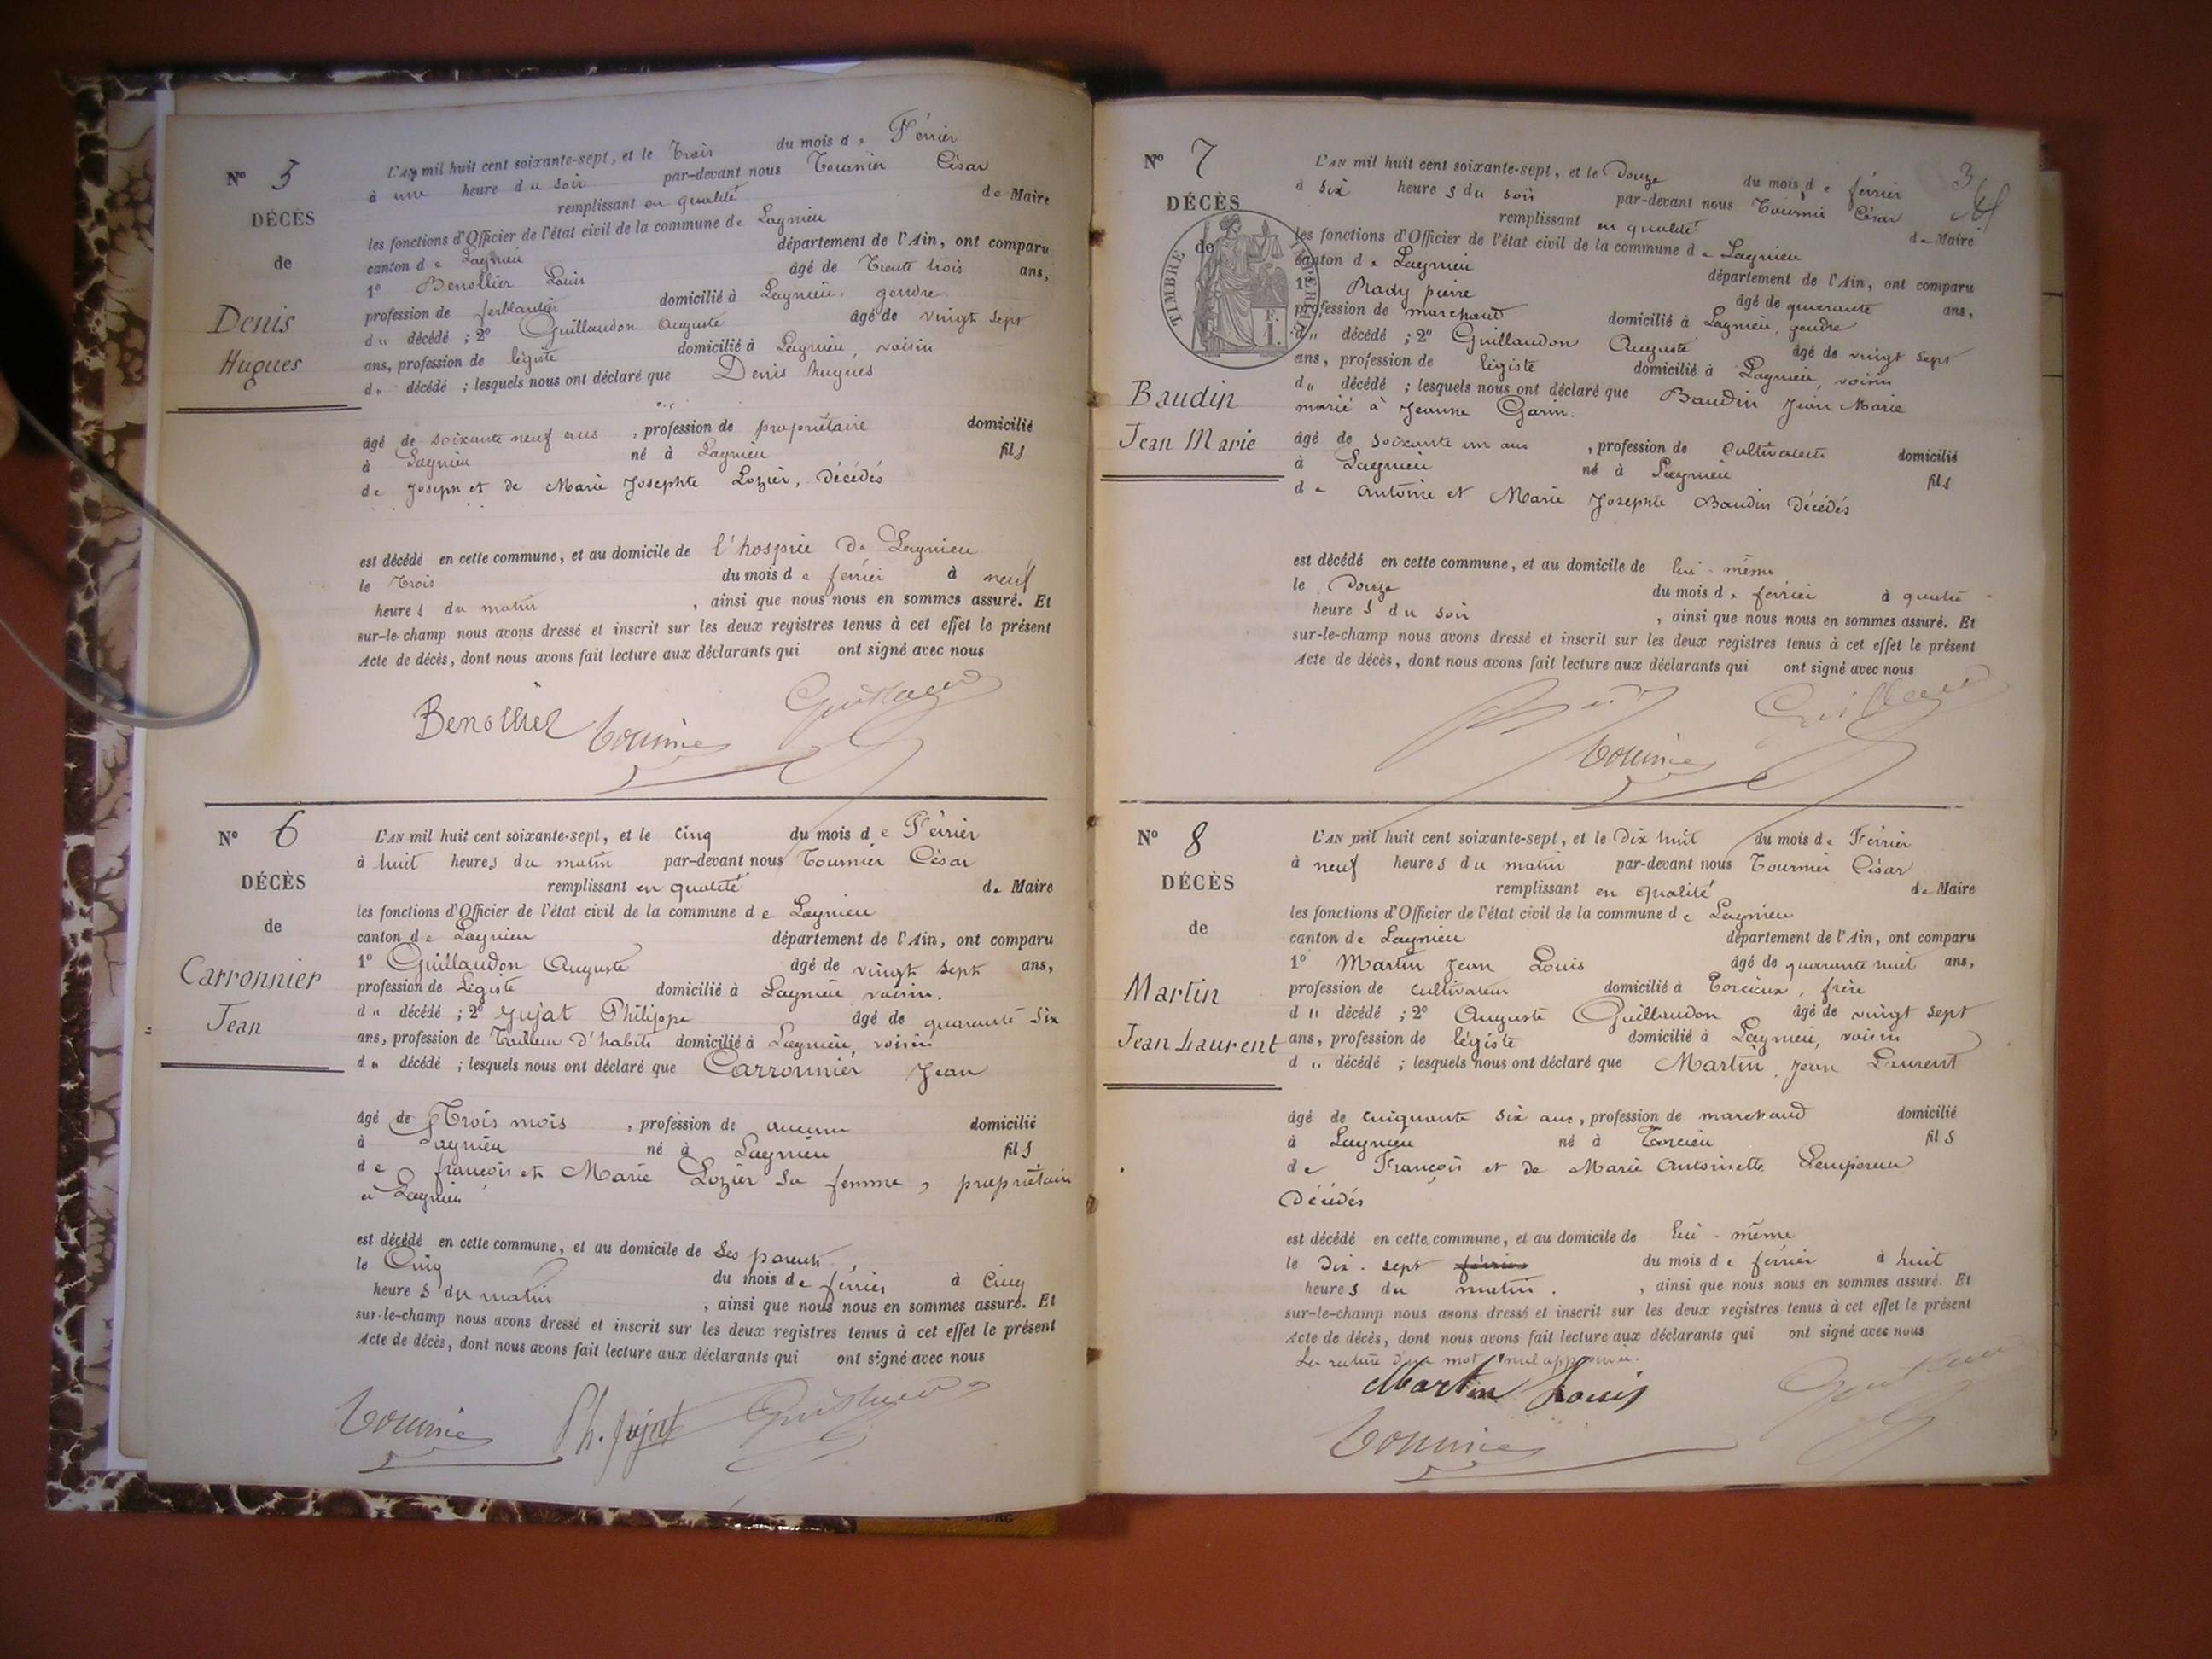 N° 5
DÉCÈS
de
Denis
Hugues
L'AN mil huit cent soixante-sept, et le Trois du mois de Février
à une heure du soir par-devant nous Tournier César
remplissant en qualité de Maire
les fonctions d'Officier de l'état civil de la commune de Lagnieu
canton de Lagnieu département de l'Ain, ont comparu
1° Benollier Louis âgé de Trente trois ans,
profession de ferblantier domicilié à Lagnieu, gendre
d" décédé ; 2° Guillaudon Auguste âgé de vingt sept
ans, profession de légiste domicilié à Lagnieu, voisin
d" décédé ; lesquels nous ont déclaré que Denis hugues
âgé de soixante neuf ans , profession de propriétaire domicilié
à Lagnieu né à Lagnieu fils
de Joseph et de Marie Josephte Lozier, décédés
est décédé en cette commune, et au domicile de l'hospice de Lagnieu
le Trois du mois de février à neuf
heures du matin , ainsi que nous nous en sommes assuré. Et
sur-le-champ nous avons dressé et inscrit sur les deux registres tenus à cet effet le présent
Acte de décès, dont nous avons fait lecture aux déclarants qui ont signé avec nous
Benollier Tournier
N° 6
DÉCÈS
de
Carronnier
Jean
L'AN mil huit cent soixante-sept, et le cinq du mois de Février
à huit heures du matin par-devant nous Tournier César
remplissant en qualité de Maire
les fonctions d'Officier de l'état civil de la commune de Lagnieu
canton de Lagnieu département de l'Ain, ont comparu
1° Guillaudon Auguste âgé de vingt sept ans,
profession de Légiste domicilié à Lagnieu, voisin.
d" décédé ; 2° Jujat Philippe âgé de quarante six
ans, profession de Tailleur d'habits domicilié à Lagnieu, voisin
d" décédé ; lesquels nous ont déclaré que Carronnier Jean
âgé de Trois mois , profession de aucune domicilié
à Lagnieu né à Lagnieu fils
de françois et Marie Lozier sa femme, propriétaire
à Lagnieu
est décédé en cette commune, et au domicile de ses parents
le Cinq du mois de février à cinq
heures du matin , ainsi que nous nous en sommes assuré. Et
sur-le-champ nous avons dressé et inscrit sur les deux registres tenus à cet effet le présent
Acte de décès, dont nous avons fait lecture aux déclarants qui ont signé avec nous
Tournier Ph. Jujat
3
N° 7
DÉCÈS
de
TIMBRE IMPERIAL
F. 1.
Baudin
Jean Marie
L'AN mil huit cent soixante-sept, et le Douze du mois de février
à six heures du soir par-devant nous Tournier César
remplissant en qualité de Maire
les fonctions d'Officier de l'état civil de la commune de Lagnieu
canton de Lagnieu département de l'Ain, ont comparu
1° Rady pierre âgé de quarante ans,
profession de marchand domicilié à Lagnieu, gendre
d" décédé ; 2° Guillaudon Auguste âgé de vingt sept
ans, profession de légiste domicilié à Lagnieu, voisin
d" décédé ; lesquels nous ont déclaré que Baudin Jean Marie
marié à Jeanne Garin.
âgé de soixante un ans , profession de cultivateur domicilié
à Lagnieu né à Lagnieu fils
de antoine et Marie Josephte Baudin décédés
est décédé en cette commune, et au domicile de lui-même
le Douze du mois de février à quatre
heures du soir , ainsi que nous nous en sommes assuré. Et
sur-le-champ nous avons dressé et inscrit sur les deux registres tenus à cet effet le présent
Acte de décès, dont nous avons fait lecture aux déclarants qui ont signé avec nous
Tournier
N° 8
DÉCÈS
de
Martin
Jean Laurent
L'AN mil huit cent soixante-sept, et le Dix huit du mois de Février
à neuf heures du matin par-devant nous Tournier César
remplissant en qualité de Maire
les fonctions d'Officier de l'état civil de la commune de Lagnieu
canton de Lagnieu département de l'Ain, ont comparu
1° Martin Jean Louis âgé de quarante huit ans,
profession de cultivateur domicilié à Torcieux, frère
d" décédé ; 2° Auguste Guillaudon âgé de vingt sept
ans, profession de légiste domicilié à Lagnieu, voisin
d" décédé ; lesquels nous ont déclaré que Martin, Jean Laurent
âgé de cinquante six ans, profession de marchand domicilié
à Lagnieu né à Torcieu fils
de François et de Marie Antoinette Lempereur
Décédés
est décédé en cette commune, et au domicile de lui-même
le Dix-sept février du mois de février à huit
heures du matin. , ainsi que nous nous en sommes assuré. Et
sur-le-champ nous avons dressé et inscrit sur les deux registres tenus à cet effet le présent
Acte de décès, dont nous avons fait lecture aux déclarants qui ont signé avec nous
La rature d'un mot nul approuvée.
Martin Louis
Tournier